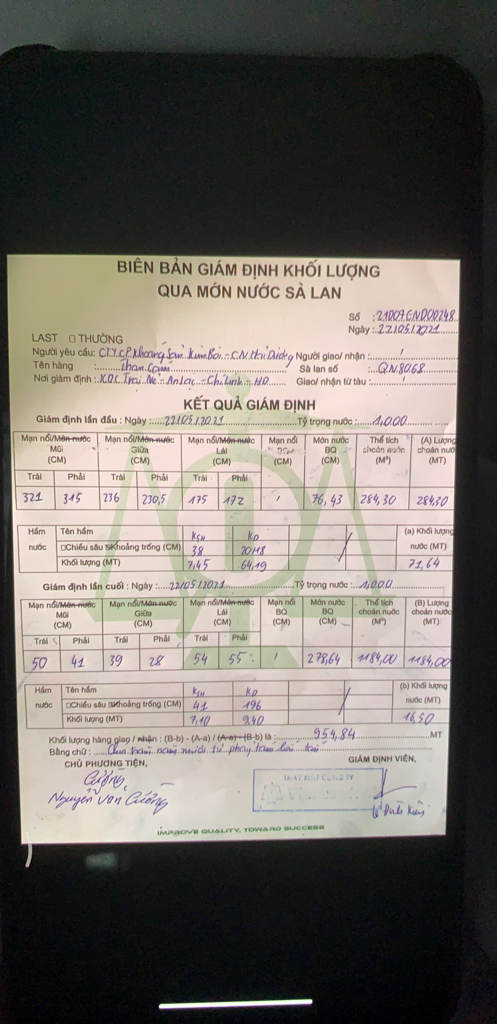 BIÊN BẢN GIÁM ĐỊNH KHỐI LƯỢNG
QUA MỚN NƯỚC SÀ LAN
Số : 21007.GND00248
Ngày : 22/05/2021
LAST □ THƯỜNG
Người yêu cầu: CTY CP Khoáng Sản Kim Bôi - CN Hải Dương Người giao/ nhận : /
Tên hàng : Than Cám Sà lan số : QN8068
Nơi giám định : KDC Trại Nẻ - An Lạc - Chí Linh - HD Giao/ nhận từ tàu : /
KẾT QUẢ GIÁM ĐỊNH
Giám định lần đầu : Ngày : 22/05/2021 Tỷ trọng nước : 1,000
Mạn nổi/Món nước Mũi (CM) Mạn nổi/Món nước Giữa (CM) Mạn nổi/Món nước Lái (CM) Mạn nổi (CM) Món nước BQ (CM) Thể tích choán nước (M³) (A) Lượng choán nước (MT)
Trái Phải Trái Phải Trái Phải
321 315 236 230,5 175 172 / 76,43 284,30 284,30
Hầm nước Tên hầm KSH KĐ (a) Khối lượng nước (MT)
□Chiều sâu Khoảng trống (CM) 38
Khối lượng (MT) 7,45 64,19 71,64
Giám định lần cuối : Ngày : 22/05/2021 Tỷ trọng nước : 1,000
Mạn nổi/Món nước Mũi (CM) Mạn nổi/Món nước Giữa (CM) Mạn nổi/Món nước Lái (CM) Mạn nổi BQ (CM) Món nước BQ (CM) Thể tích choán nước (M³) (B) Lượng choán nước (MT)
Trái Phải Trái Phải Trái Phải
50 41 39 28 54 55 / 278,64 1184,00 1184,00
Hầm nước Tên hầm KSH KĐ (b) Khối lượng nước (MT)
□Chiều sâu Khoảng trống (CM) 41 196
Khối lượng (MT) 7,10 9,40 16,50
Khối lượng hàng giao / nhận : (B-b) - (A-a) / (A-a) - (B-b) là : 954,84 MT
Bằng chữ : Chín trăm năm mươi tư phẩy tám bốn tấn
CHỦ PHƯƠNG TIỆN, GIÁM ĐỊNH VIÊN,
Cường
Nguyễn Văn Cường
THAY MẶT CÔNG TY
IMPROVE QUALITY, TOWARD SUCCESS